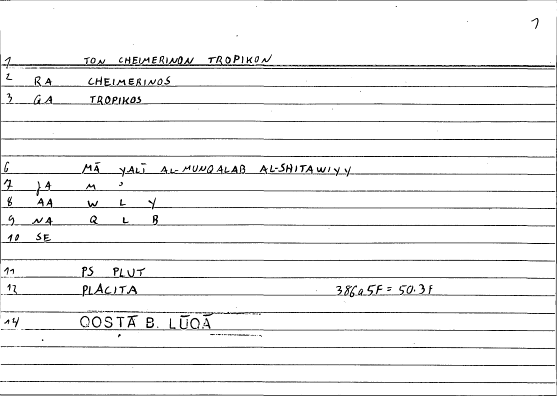 7
1 TON CHEIMERINON TROPIKON
2 RA CHEIMERINOS
3 GA TROPIKOS
6 MĀ YALĪ AL-MUNQALAB AL-SHITAWIYY
7 JA M ʾ
8 AA W L Y
9 NA Q L B
10 SE
11 PS PLUT
12 PLACITA 386a5F = 50.3f
14 QOSTĀ B. LŪQĀ